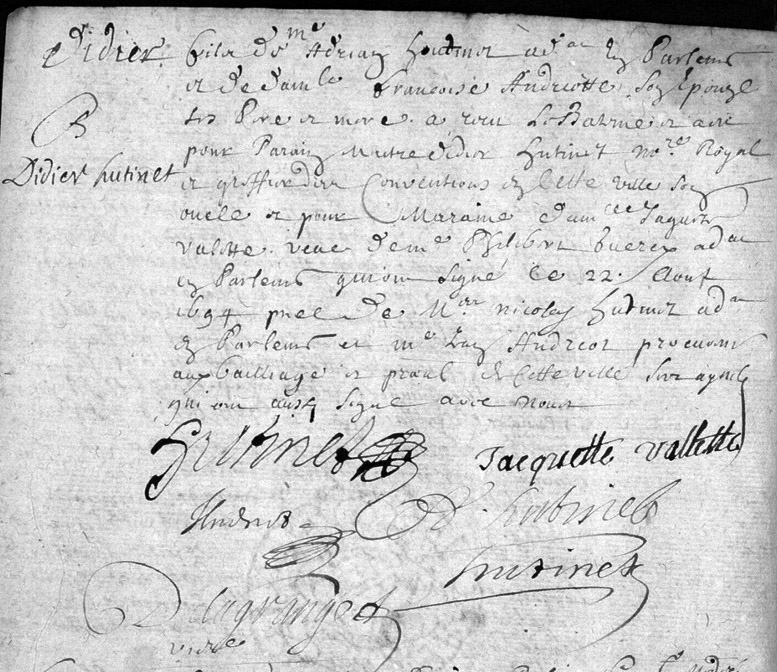 Didier fils de mre Adrian Hutinet adat en Parlemt
et de damlle Francoise Andriotte son Epouze
ses Pere et mere a recu le Batme et a eü
B
pour Parain Maitre didier Hutinet nore Royal
Didier hutinet
et greffier des Conventions en Cette ville son
oncle et pour Maraine damelle Jaquette
valette veue de me Philibert adat
en Parlemt qui ont signé ce 22. Aout
1694 pnce de Mr nicolas Hutinet adat
en Parlemt et me Andriot procureur
aux bailliage et pnal de Cette ville ses ayeuls
qui ont aussy signé avec Nous
Hutinet Jacquette vallette
Andriot D. hutinet
hutinet
Delagrange
vire